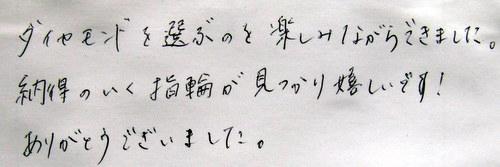 ダイヤモンドを選ぶのを楽しみながらできました。
納得のいく指輪が見つかり嬉しいです!
ありがとうございました。